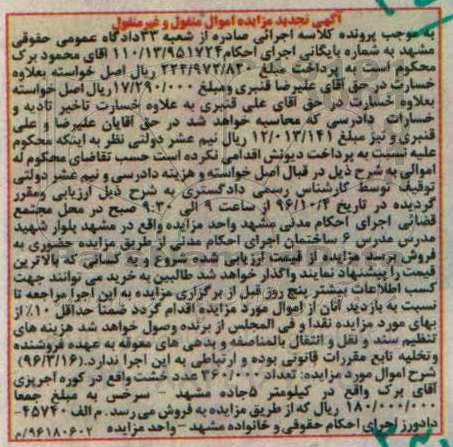 آگهی تجدید مزایده اموال منقول و غیرمنقول
به موجب پرونده کلاسه اجرائی صادره از شعبه ۳۳دادگاه عمومی حقوقی
مشهد به شماره بایگانی اجرای احکام۱۱۰/۱۳/۹۵۱۷۲۴ آقای محمود برک
محکوم است به پرداخت مبلغ ۲۲۴/۹۷۳/۸۳۰ ریال اصل خواسته بعلاوه
خسارت در حق آقای علیرضا قنبری ومبلغ ۱۷/۲۹۰/۰۰۰ریال اصل خواسته
بعلاوه خسارت در حق آقای علی قنبری به علاوه خسارت تاخیر تادیه و
خسارات دادرسی که محاسبه خواهد شد در حق آقایان علیرضا و علی
قنبری و نیز مبلغ ۱۲/۰۱۳/۱۴۱ ریال نیم عشر دولتی نظر به اینکه محکوم
علیه نسبت به پرداخت دیونش اقدامی نکرده است حسب تقاضای محکوم له
اموالی به شرح ذیل در قبال اصل خواسته و هزینه دادرسی و نیم عشر دولتی
توقیف توسط کارشناس رسمی دادگستری به شرح ذیل ارزیابی ومقرر
گردیده در تاریخ ۹۶/۱۰/۴ از ساعت ۹ الی ۹:۳۰ صبح در محل مجتمع
قضائی اجرای احکام مدنی مشهد واحد مزایده واقع در مشهد بلوار شهید
مدرس مدرس ۶ ساختمان اجرای احکام مدنی از طریق مزایده حضوری به
فروش برسد مزایده از قیمت ارزیابی شده شروع و به کسانی که بالاترین
قیمت را پیشنهاد نمایند واگذار خواهد شد طالبین به خرید می توانند جهت
کسب اطلاعات بیشتر پنج روز قبل از برگزاری مزایده به این اجرا مراجعه تا
نسبت به بازدید آنان از اموال مورد مزایده اقدام گردد ضمنا حداقل ۱۰٪ از
بهای مورد مزایده نقدا و فی المجلس از برنده وصول خواهد شد هزینه های
تنظیم سند و نقل و انتقال بالمناصفه و بدهی های معوقه به عهده فروشنده
وتخلیه تابع مقررات قانونی بوده و ارتباطی به این اجرا ندارد.(۹۶/۳/۱۶)
شرح اموال مورد مزایده: تعداد ۳۶۰/۰۰۰ عدد خشت واقع در کوره اجرپزی
آقای برک واقع در کیلومتر ۵جاده مشهد - سرخس به مبلغ جمعا
۱۸۰/۰۰۰/۰۰۰ ریال که از طریق مزایده به فروش می رسد. م الف ۴۵۷۴۰-
دادورز اجرای احکام حقوقی و خانواده مشهد - واحد مزایده ۹۶۱۸۰۶۰۲/م